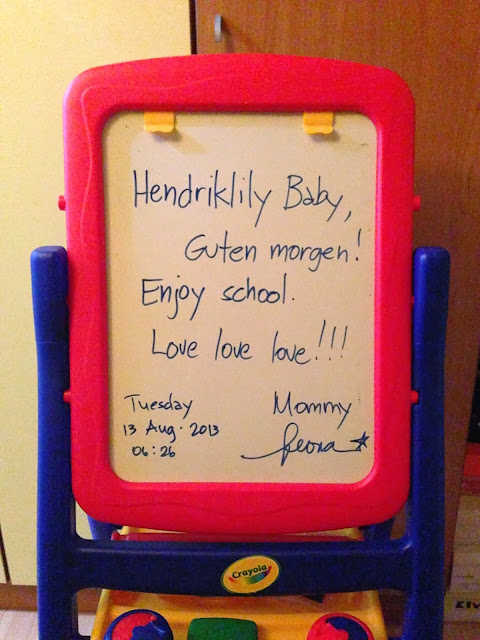 Hendriklily Baby,
Guten morgen!
Enjoy school.
Love love love!!!
Tuesday
13 Aug. 2013
06:26
Mommy
Crayola